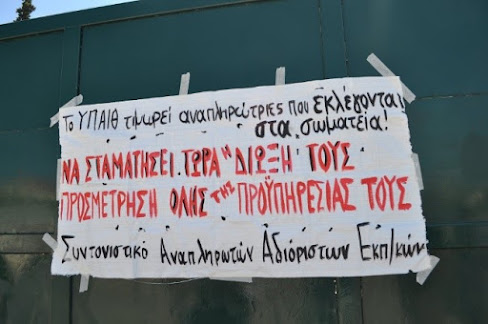 Το ΥΠΑΙΘ τιμωρεί αναπληρώτριες που εκλέγονται
στα σωματεία!
ΝΑ ΣΤΑΜΑΤΗΣΕΙ ΤΩΡΑ Η ΔΙΩΞΗ ΤΟΥΣ
ΠΡΟΣΜΕΤΡΗΣΗ ΟΛΗΣ της ΠΡΟΫΠΗΡΕΣΙΑΣ ΤΟΥΣ
Συντονιστικό Αναπληρωτών Αδιόριστων Εκπ/κών